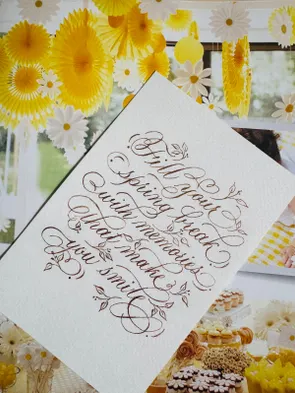 Fill you
spring break
with memories
that make
you smile